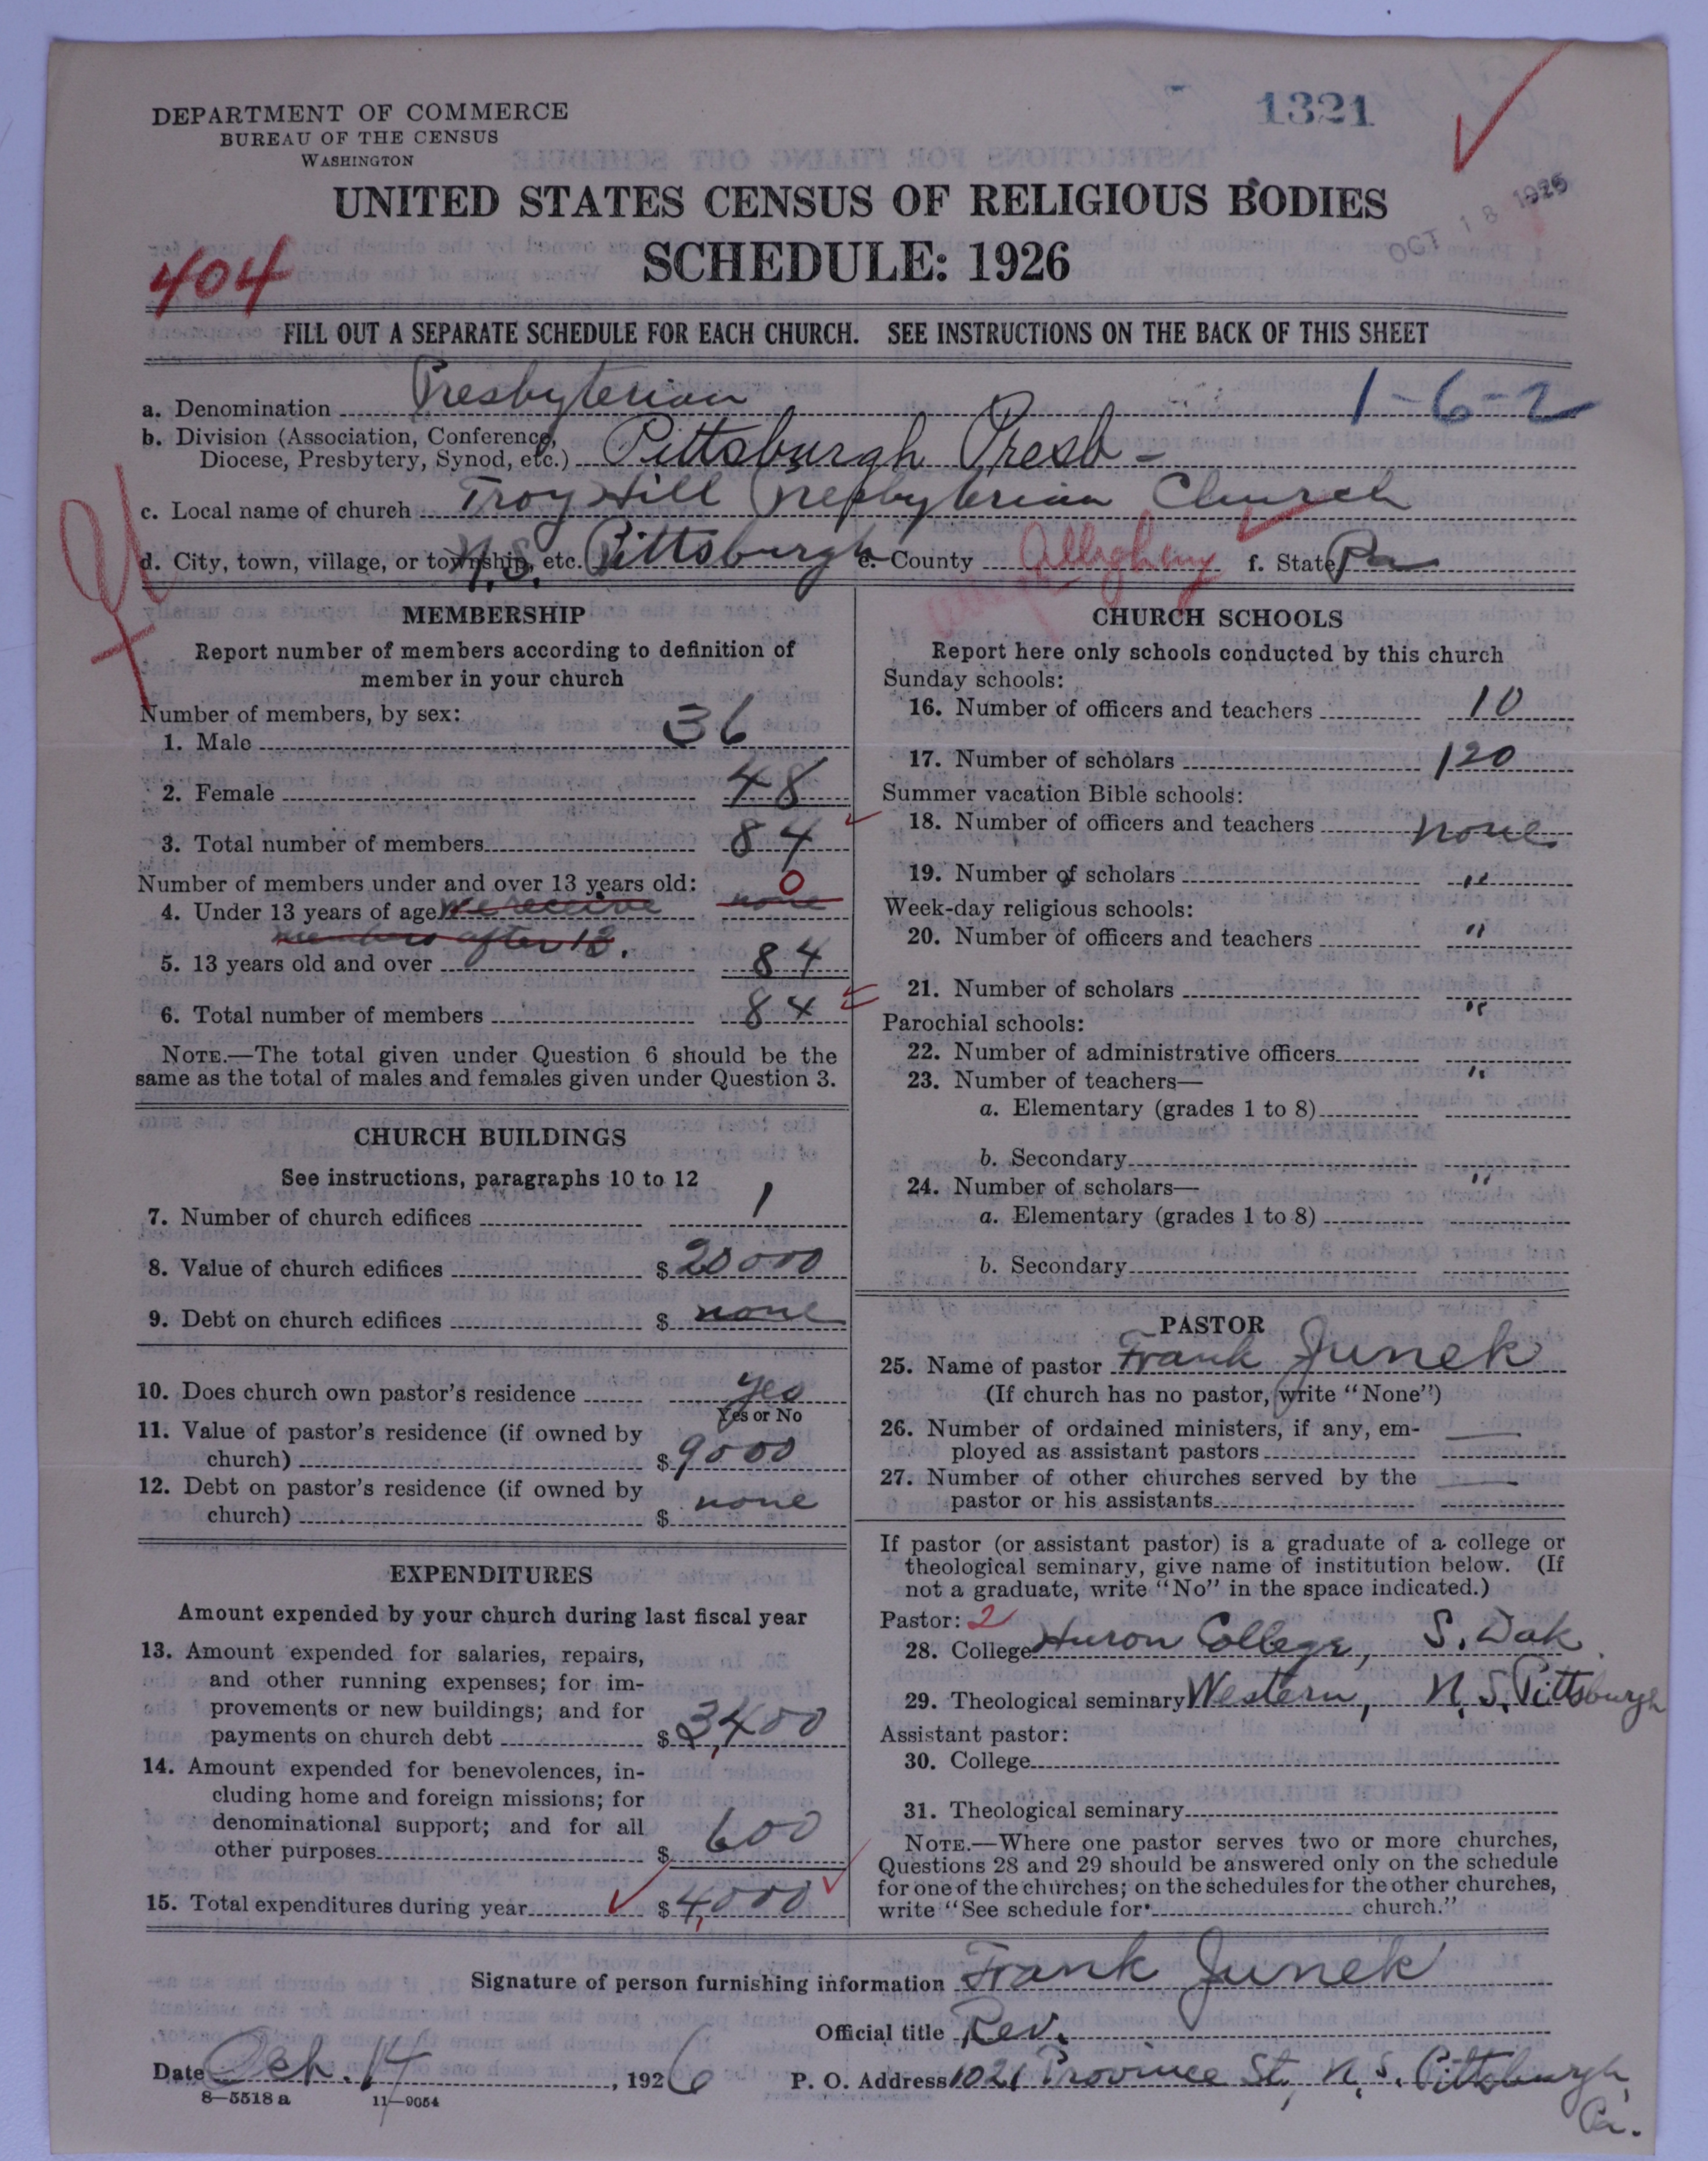 1321
DEPARTMENT OF COMMERCE
BUREAU OF THE CENSUS
WASHINGTON
UNITED STATES CENSUS OF RELIGIOUS BODIES
OCT 18 1926
SCHEDULE: 1926
404
FILL OUT A SEPARATE SCHEDULE FOR EACH CHURCH. SEE INSTRUCTIONS ON THE BACK OF THIS SHEET
a. Denomination Presbyterian 1-6-2
b. Division (Association, Conference,
Diocese, Presbytery, Synod, etc.) Pittsburgh Presb-
c. Local name of church Troy Hill Presbyterian Church
d. City, town, village, or township, etc. N.S. Pittsburgh e. County Allegheny f. State Pa
MEMBERSHIP
Report number of members according to definition of
member in your church
Number of members, by sex:
1. Male 36
2. Female 48
3. Total number of members 84
Number of members under and over 13 years old: 0
4. Under 13 years of age We receive none
members after 13.
5. 13 years old and over 84
6. Total number of members 84
NOTE.—The total given under Question 6 should be the
same as the total of males and females given under Question 3.
CHURCH BUILDINGS
See instructions, paragraphs 10 to 12
7. Number of church edifices 1
8. Value of church edifices $ 20000
9. Debt on church edifices $ none
10. Does church own pastor's residence yes
Yes or No
11. Value of pastor's residence (if owned by
church) $ 9000
12. Debt on pastor's residence (if owned by
church) $ none
EXPENDITURES
Amount expended by your church during last fiscal year
13. Amount expended for salaries, repairs,
and other running expenses; for im-
provements or new buildings; and for
payments on church debt $ 3,400
14. Amount expended for benevolences, in-
cluding home and foreign missions; for
denominational support; and for all
other purposes $ 600
15. Total expenditures during year $ 4,000
CHURCH SCHOOLS
Report here only schools conducted by this church
Sunday schools:
16. Number of officers and teachers 10
17. Number of scholars 120
Summer vacation Bible schools:
18. Number of officers and teachers none
19. Number of scholars "
Week-day religious schools:
20. Number of officers and teachers "
21. Number of scholars "
Parochial schools:
22. Number of administrative officers "
23. Number of teachers—
a. Elementary (grades 1 to 8)
b. Secondary "
24. Number of scholars—
a. Elementary (grades 1 to 8)
b. Secondary
PASTOR
25. Name of pastor Frank Junek
(If church has no pastor, write "None")
26. Number of ordained ministers, if any, em-
ployed as assistant pastors —
27. Number of other churches served by the
pastor or his assistants —
If pastor (or assistant pastor) is a graduate of a college or
theological seminary, give name of institution below. (If
not a graduate, write "No" in the space indicated.)
Pastor: 2
28. College Huron College, S. Dak.
29. Theological seminary Western, N.S. Pittsburgh
Assistant pastor:
30. College
31. Theological seminary
NOTE.—Where one pastor serves two or more churches,
Questions 28 and 29 should be answered only on the schedule
for one of the churches; on the schedules for the other churches,
write "See schedule for church."
Signature of person furnishing information Frank Junek
Official title Rev.
Date Oct. 14, 1926 P. O. Address 1021 Province St., N.S. Pittsburgh,
Pa.
8—5518 a 11—9054